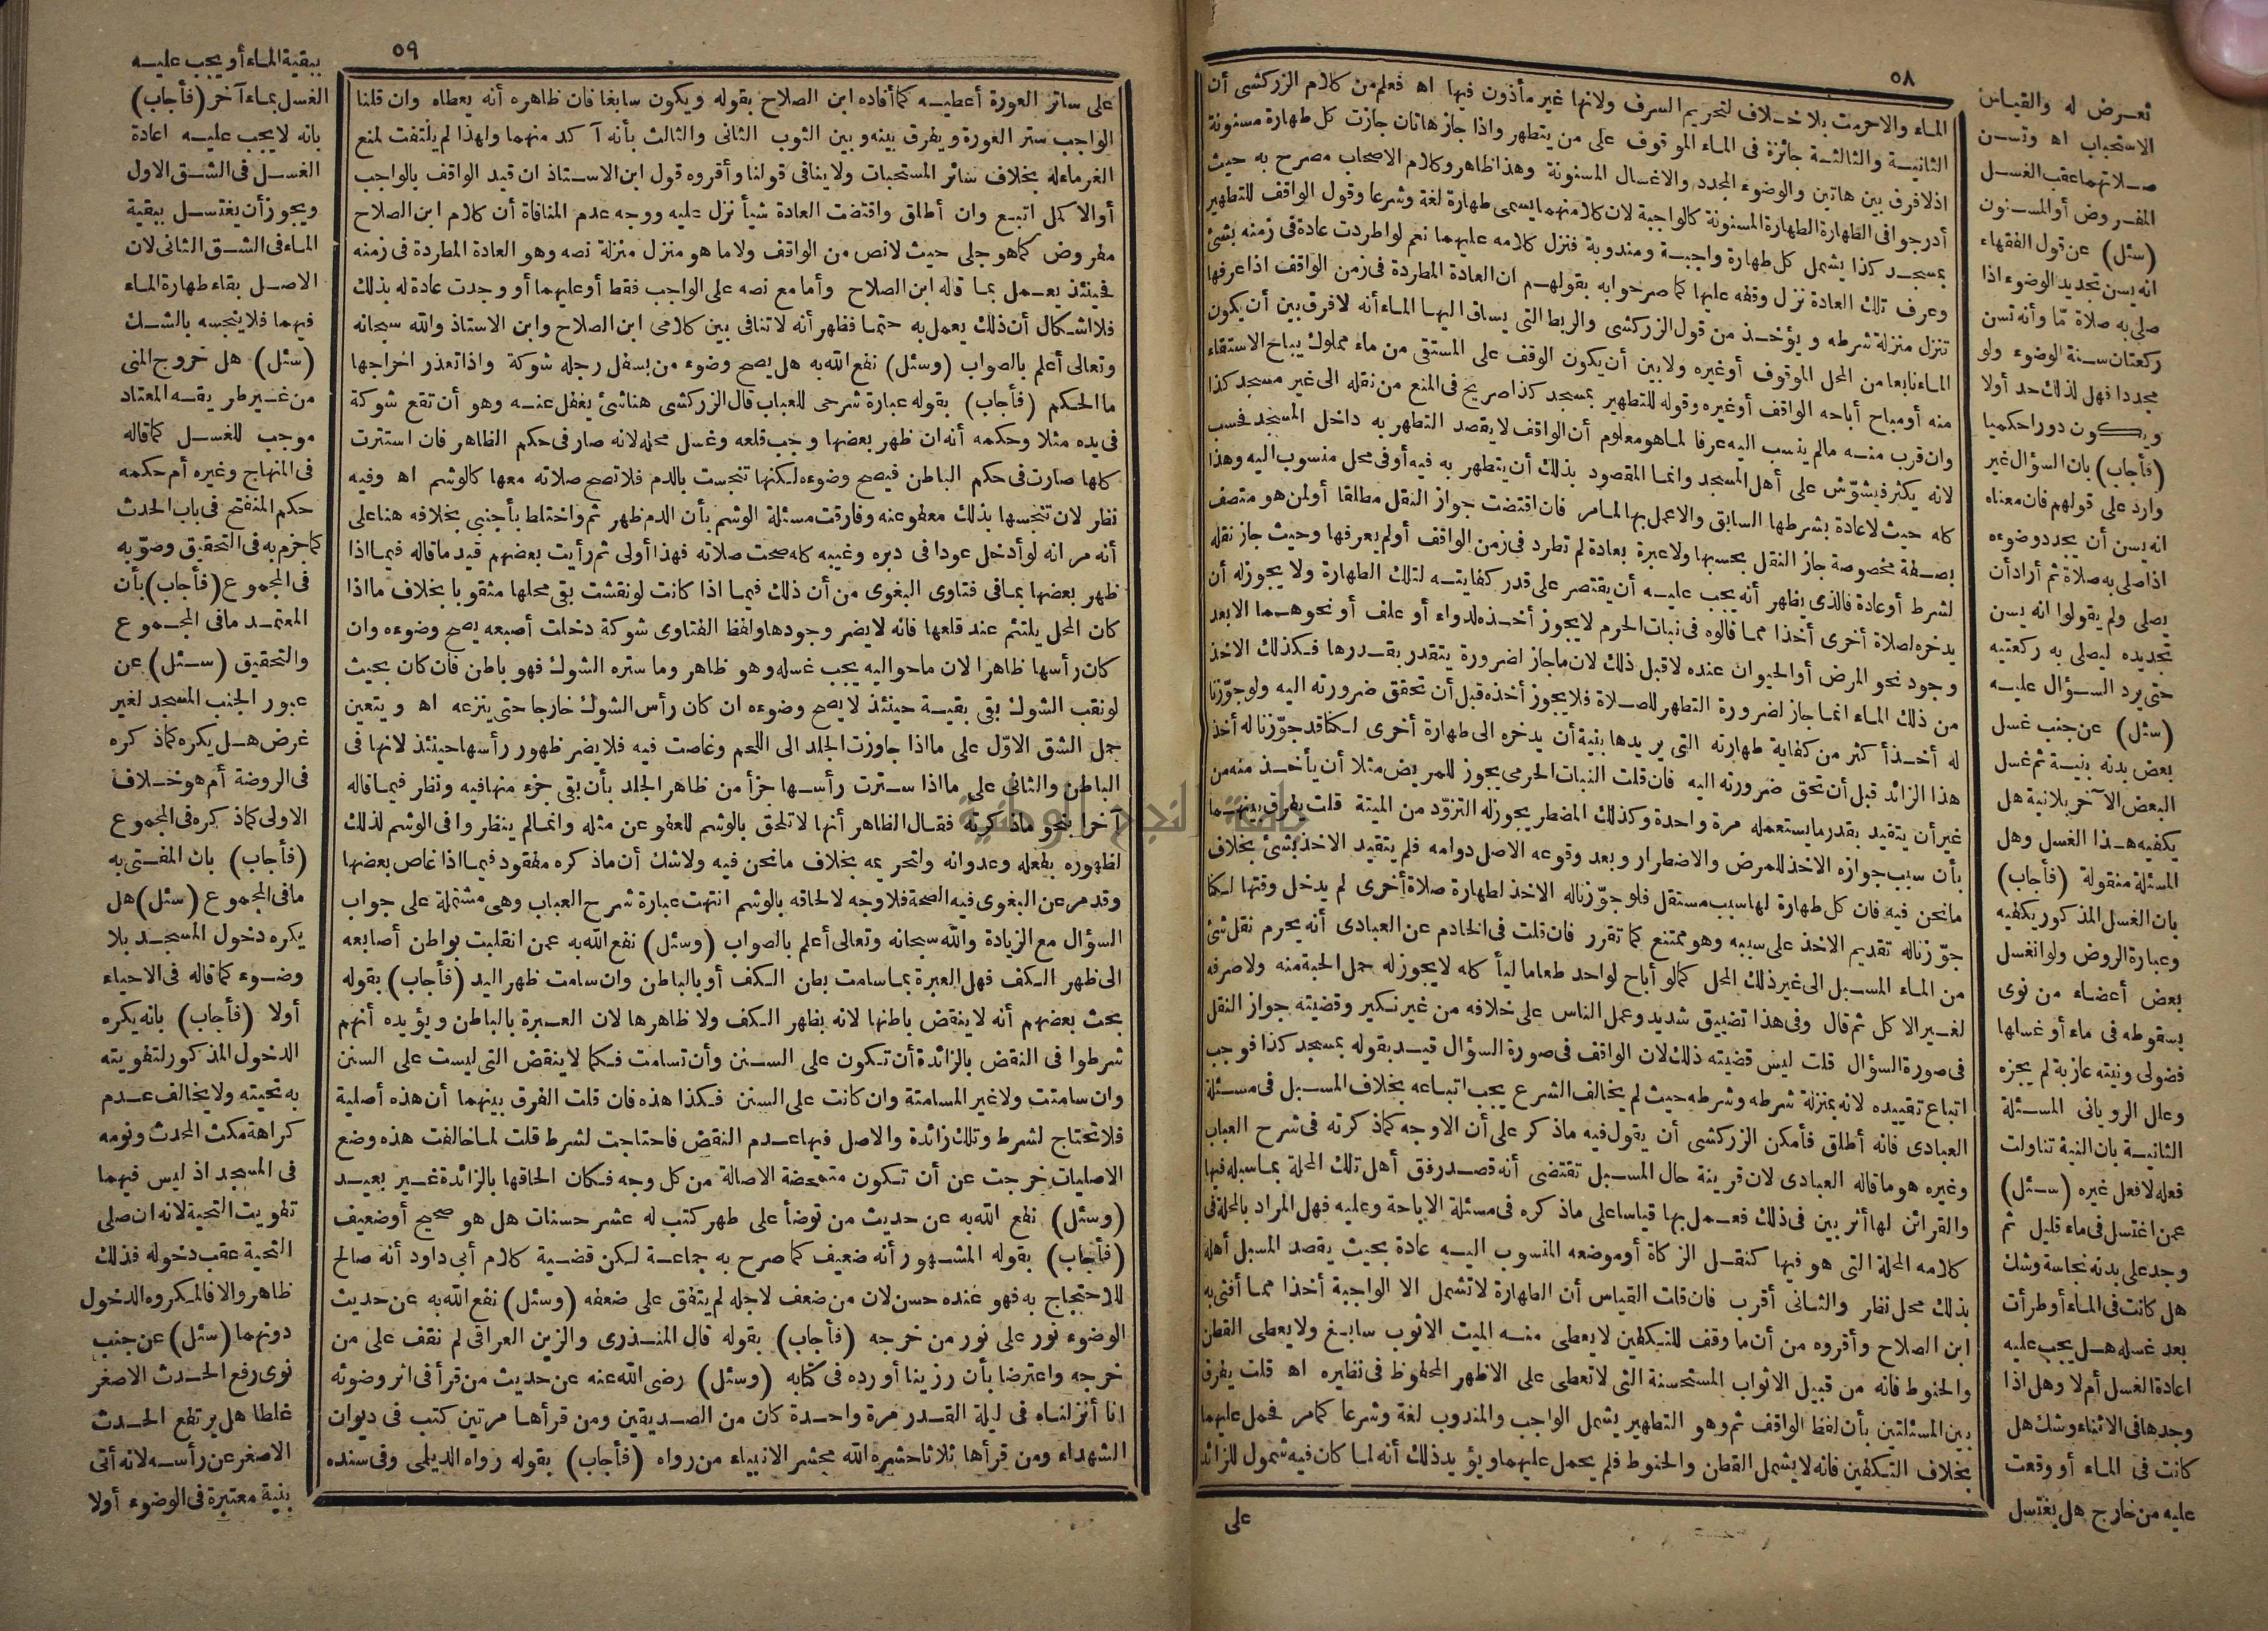 ٥٨
الماء والاحرمت بلا خلاف لتحريم السرف ولانها غير مأذون فيها اه فعلم من كلام الزركشى أن
الثانية والثالثة جائزة فى الماء الموقوف على من يتطهر واذا جاز هاتان جازت كل طهارة مسنونة
اذلافرق بين هاتين والوضوء المجدد والاغسال المسنونة وهذا ظاهر وكلام الاصحاب مصرح به حيث
أدرجوا فى الطهارة الطهارة المسنونة كالواجبة لان كلامنهما يسمى طهارة لغة وشرعا وقول الواقف للتطهير
بمسجد كذا يشمل كل طهارة واجبة ومندوبة فنزل كلامه عليهما نعم لواطردت عادة فى زمنه بشئ
وعرف تلك العادة نزل وقفه عليها كما صرحوا به بقولهم ان العادة المطردة فى زمن الواقف اذا عرفها
تنزل منزلة شرطه ويؤخذ من قول الزركشى والربط التى يساق اليها الماء أنه لافرق بين أن يكون
الماء نابعا من المحل الموقوف أوغيره ولابين أن يكون الوقف على المستقى من ماء مملوك يباح الاستقاء
منه أومباح أباحه الواقف أوغيره وقوله للتطهير بمسجد كذا صريح فى المنع من نقله الى غير مسجد كذا
وان قرب منه مالم ينسب اليه عرفا لما هو معلوم أن الواقف لا يقصد التطهر به داخل المسجد فحسب
لانه يكثر فيشوّش على أهل المسجد وانما المقصود بذلك أن يتطهر به فيه أو فى محل منسوب اليه وهذا
كله حيث لاعادة بشرطها السابق والاعمل بها المامر فان اقتضت جواز النقل مطلقا أولمن هو متصف
بصفة مخصوصة جاز النقل بحسبها ولاعبرة بعادة لم تطرد فى زمن الواقف أولم يعرفها وحيث جاز نقله
لشرط أوعادة فالذى يظهر أنه يجب عليه أن يقتصر على قدر كفايته لتلك الطهارة ولا يجوزله أن
يدخره لصلاة أخرى أخذا مما قالوه فى نبات الحرم لا يجوز أخذه لدواء أو علف أو نحوهما الابعد
وجود نحو المرض أوالحيوان عنده لاقبل ذلك لان ماجاز لضرورة يتقدر بقدرها فكذلك الاخذ
من ذلك الماء انما جاز لضرورة التطهر للصلاة فلايجوز أخذه قبل أن تحقق ضرورته اليه ولو جوّزنا
له أخذ أكثر من كفاية طهارته التى يريدها بنية أن يدخره الى طهارة أخرى لكنا قد جوّزنا له أخذ
هذا الزائد قبل أن تحق ضرورته اليه فان قلت النبات الحرمى يجوز للمريض مثلا أن يأخذ منه من
غير أن يتقيد بقدر ما يستعمله مرة واحدة وكذلك المضطر يجوزله التزوّد من الميتة قلت يفرق بينهما
بأن سبب جوازه الاخذ للمرض والاضطرار وبعد وقوعه الاصل دوامه فلم يتقيد الاخذ بشئ بخلاف
مانحن فيه فان كل طهارة لها سبب مستقل فلو جوّزناله الاخذ لطهارة صلاة أخرى لم يدخل وقتها لكنا
جوّزناله تقديم الاخذ على سببه وهو ممتنع كما تقرر فان قلت فى الخادم عن العبادى أنه يحرم نقل شئ
من الماء المسبل الى غير ذلك المحل كمالو أباح لواحد طعاما ليأكله لا يجوز له حمل الحبة منه ولاصرفه
لغير الاكل ثم قال وفى هذا تضييق شديد وعمل الناس على خلافه من غير نكير وقضيته جواز النقل
فى صورة السؤال قلت ليس قضيته ذلك لان الواقف فى صورة السؤال قيد بقوله بمسجد كذا فوجب
اتباع تقييده لانه بمنزلة شرطه وشرطه حيث لم يخالف الشرع يجب اتباعه بخلاف المسبل فى مسئلة
العبادى فانه أطلق فأمكن الزركشى أن يقول فيه ماذكر على أن الاوجه كماذكرته فى شرح العباب
وغيره هو ماقاله العبادى لان قرينة حال المسبل تقتضى أنه قصد رفق أهل تلك المحلة بماسبله فيها
والقرائن لها أثر بين فى ذلك فعمل بها قياسا على ماذكره فى مسئلة الاباحة وعليه فهل المراد بالمحلة فى
كلامه المحلة التى هو فيها كنقل الزكاة أوموضعه المنسوب اليه عادة بحيث يقصد المسبل أهله
بذلك محل نظر والثانى أقرب فان قلت القياس أن الطهارة لاتشمل الا الواجبة أخذا مما أفتى به
ابن الصلاح وأقروه من أن ماوقف للتكفين لا يعطى منه الميت الاثوب سابغ ولا يعطى القطن
والحنوط فانه من قبيل الاثواب المستحسنة التى لاتعطى على الاظهر المحفوظ فى نظيره اه قلت يفرق
بين المسئلتين بأن لفظ الواقف ثم وهو التطهير يشمل الواجب والمندوب لغة وشرعا كمامر فحمل عليهما
بخلاف التكفين فانه لايشمل القطن والحنوط فلم يحمل عليهما ويؤيد ذلك أنه لما كان فيه شمول للزائد
على
تعرض له والقياس
الاستحباب اه وتسن
صلاتهما عقب الغسل
المفروض أوالمسنون
(سئل) عن قول الفقهاء
انه يسن تجديد الوضوء اذا
صلى به صلاة مّا وأنه تسن
ركعتان سنة الوضوء ولو
مجددا فهل لذلك حد أولا
ويكون دورا حكميا
(فأجاب) بان السؤال غير
وارد على قولهم فان معناه
انه يسن أن يجدد وضوءه
اذا صلى به صلاة ثم أراد أن
يصلى ولم يقولوا انه يسن
تجديده ليصلى به ركعتيه
حتى يرد السؤال عليه
(سئل) عن جنب غسل
بعض بدنه بنية ثم غسل
البعض الآخر بلانية هل
يكفيه هذا الغسل وهل
المسئلة منقولة (فأجاب)
بان الغسل المذكور يكفيه
وعبارة الروض ولو انغسل
بعض أعضاء من نوى
بسقوطه فى ماء أو غسلها
فضولى ونيته عازبة لم يجزه
وعلل الرويانى المسئلة
الثانية بان النية تناولت
فعله لافعل غيره (سئل)
عمن اغتسل فى ماء قليل ثم
وجد على بدنه نجاسة وشك
هل كانت فى الماء أو طرأت
بعد غسله هل يجب عليه
اعادة الغسل أم لا وهل اذا
وجدها فى الاثناء وشك هل
كانت فى الماء أو وقعت
عليه من خارج هل يغتسل
٥٩
على ساتر العورة أعطيه كما أفاده ابن الصلاح بقوله ويكون سابغا فان ظاهره أنه يعطاه وان قلنا
الواجب ستر العورة ويفرق بينه وبين الثوب الثانى والثالث بأنه آكد منهما ولهذا لم يلتفت لمنع
الغرماءله بخلاف سائر المستحبات ولاينافى قولنا وأقروه قول ابن الاستاذ ان قيد الواقف بالواجب
أوالاكمل اتبع وان أطلق واقتضت العادة شيأ نزل عليه ووجه عدم المنافاة أن كلام ابن الصلاح
مفروض كماهو جلى حيث لانص من الواقف ولا ما هو منزل منزلة نصه وهو العادة المطردة فى زمنه
فحينئذ يعمل بما قاله ابن الصلاح وأما مع نصه على الواجب فقط أو عليهما أو وجدت عادة له بذلك
فلااشكال أن ذلك يعمل به حتما فظهر أنه لاتنافى بين كلامى ابن الصلاح وابن الاستاذ والله سبحانه
وتعالى أعلم بالصواب (وسئل) نفع الله به هل يصح وضوء من بسفل رجله شوكة واذا تعذر اخراجها
ما الحكم (فأجاب) بقوله عبارة شرحى للعباب قال الزركشى هناشئ يغفل عنه وهو أن تقع شوكة
فى يده مثلا وحكمه أنه ان ظهر بعضها وجب قلعه وغسل محله لانه صار فى حكم الظاهر فان استترت
كلها صارت فى حكم الباطن فيصح وضوءه لكنها تنجست بالدم فلاتصح صلاته معها كالوشم اه وفيه
نظر لان تنجسها بذلك معفو عنه وفارقت مسئلة الوشم بأن الدم ظهر ثم واختلط بأجنبى بخلافه هنا على
أنه مر انه لو أدخل عودا فى دبره وغيبه كله صحت صلاته فهذا أولى ثم رأيت بعضهم قيد ماقاله فيما اذا
ظهر بعضها بمافى فتاوى البغوى من أن ذلك فيما اذا كانت لو نقشت بقى محلها مثقوبا بخلاف ما اذا
كان المحل يلتئم عند قلعها فانه لايضر وجودها ولفظ الفتاوى شوكة دخلت أصبعه يصح وضوءه وان
كان رأسها ظاهرا لان ماحواليه يجب غسله وهو ظاهر وما ستره الشوك فهو باطن فان كان بحيث
لو نقب الشوك بقى بقية حينئذ لايصح وضوءه ان كان رأس الشوك خارجا حتى ينزعه اه ويتعين
حمل الشق الاوّل على ما اذا جاوزت الجلد الى اللحم وغاصت فيه فلايضر ظهور رأسها حينئذ لانها فى
الباطن والثانى على ما اذا سترت رأسها جزأ من ظاهر الجلد بأن بقى جزء منها فيه ونظر فيما قاله
آخرا بنحو ماذكرته فقال الظاهر أنها لاتلحق بالوشم للعفو عن مثله وانمالم ينظروا فى الوشم لذلك
لظهوره بفعله وعدوانه وتحريمه بخلاف مانحن فيه ولاشك أن ماذكره مفقود فيما اذا غاص بعضها
وقدمر عن البغوى فيه الصحة فلاوجه لالحاقه بالوشم انتهت عبارة شرح العباب وهى مشتملة على جواب
السؤال مع الزيادة والله سبحانه وتعالى أعلم بالصواب (وسئل) نفع الله به عمن انقلبت بواطن أصابعه
الى ظهر الكف فهل العبرة بماسامت بطن الكف أو بالباطن وان سامت ظهر اليد (فأجاب) بقوله
بحث بعضهم أنه لاينقض باطنها لانه بظهر الكف ولا ظاهرها لان العبرة بالباطن ويؤيده أنهم
شرطوا فى النقض بالزائدة أن تكون على السنن وأن تسامت فكما لاينقض التى ليست على السنن
وان سامتت ولاغير المسامتة وان كانت على السنن فكذا هذه فان قلت الفرق بينهما أن هذه أصلية
فلاتحتاج لشرط وتلك زائدة والاصل فيها عدم النقض فاحتاجت لشرط قلت لما خالفت هذه وضع
الاصليات خرجت عن أن تكون متمحضة الاصالة من كل وجه فكان الحاقها بالزائدة غير بعيد
(وسئل) نفع الله به عن حديث من توضأ على طهر كتب له عشر حسنات هل هو صحيح أوضعيف
(فأجاب) بقوله المشهور أنه ضعيف كما صرح به جماعة لكن قضية كلام أبى داود أنه صالح
للاحتجاج به فهو عنده حسن لان من ضعف لاجله لم يتفق على ضعفه (وسئل) نفع الله به عن حديث
الوضوء نور على نور من خرجه (فأجاب) بقوله قال المنذرى والزين العراقى لم نقف على من
خرجه واعترضا بأن رزينا أورده فى كتابه (وسئل) رضى الله عنه عن حديث من قرأ فى اثر وضوئه
انا أنزلناه فى ليلة القدر مرة واحدة كان من الصديقين ومن قرأها مرتين كتب فى ديوان
الشهداء ومن قرأها ثلاثا حشره الله محشر الانبياء من رواه (فأجاب) بقوله رواه الديلمى وفى سنده
ببقية الماء أو يجب عليه
الغسل بماء آخر (فأجاب)
بانه لايجب عليه اعادة
الغسل فى الشق الاول
ويجوز أن يغتسل ببقية
الماء فى الشق الثانى لان
الاصل بقاء طهارة الماء
فيهما فلاينجسه بالشك
(سئل) هل خروج المنى
من غير طريقه المعتاد
موجب للغسل كماقاله
فى المنهاج وغيره أم حكمه
حكم المنفتح فى باب الحدث
كما جزم به فى التحقيق وصوّبه
فى المجموع (فأجاب) بأن
المعتمد مافى المجموع
والتحقيق (سئل) عن
عبور الجنب المسجد لغير
غرض هل يكره كماذكره
فى الروضة أم هو خلاف
الاولى كماذكره فى المجموع
(فأجاب) بان المفتى به
مافى المجموع (سئل) هل
يكره دخول المسجد بلا
وضوء كماقاله فى الاحياء
أولا (فأجاب) بانه يكره
الدخول المذكور لتفويته
به تحيته ولايخالف عدم
كراهة مكث المحدث ونومه
فى المسجد اذ ليس فيهما
تفويت التحية لانه ان صلى
التحية عقب دخوله فذلك
ظاهر والا فالمكروه الدخول
دونهما (سئل) عن جنب
نوى رفع الحدث الاصغر
غلطا هل يرتفع الحدث
الاصغر عن رأسه لانه أتى
بنية معتبرة فى الوضوء أولا